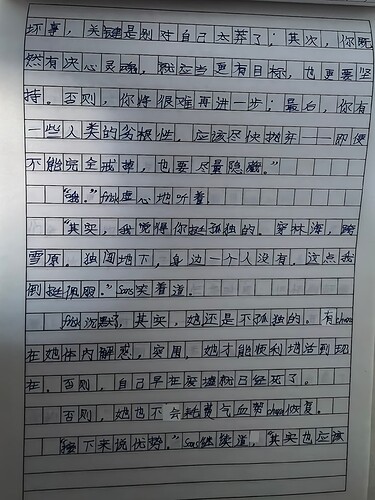 坏事，关键是别对自己太莽了；其次，你既
然有决心灵魂，就应当更有目标，也更要坚
持。否则，你将很难再进一步；最后，你有
一些人类的劣根性，应该尽快抛弃——即使
不能完全戒掉，也要尽量隐藏。”
“哦。”frisk虚心地听着
“其实，我觉得你挺孤独的。穿林海，跨
雪原。独闯地下，身边一个人没有，这点我
倒挺佩服。”sans笑着道。
frisk沉默了，其实，她还是不孤独的。有chara
在她体内解惑，突围，她才能顺利地活到现
在。否则，自己早在废墟就已经死了。
否则，她也不会耗费气血帮chara恢复。
“接下来说优势。”sans继续道，“其实也应该